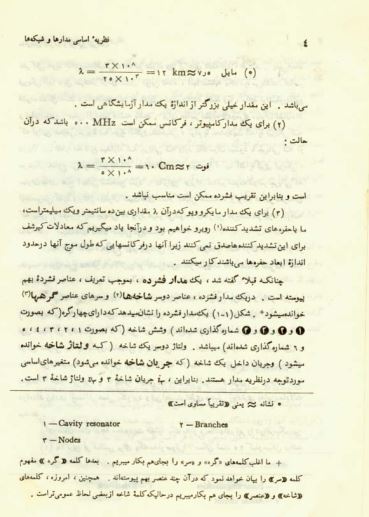 ٤ نظریهٔ اساسی مدارها و شبکه‌ها
λ = ۳×۱۰^۸ / ۲۵×۱۰^۳ = ۱۲ km ≈ ۷٫۵ مایل (*)
می‌باشد . این مقدار خیلی بزرگتر از اندازهٔ یک مدار آزمایشگاهی است .
(۲) برای یک مدار کامپیوتر ، فرکانس ممکن است ۵۰۰ MHz باشد که در آن
حالت :
λ = ۳×۱۰^۸ / ۵×۱۰^۸ = ۶۰ Cm ≈ ۲ فوت
است و بنابراین تقریب فشرده ممکن است مناسب نباشد .
(۳) برای یک مدار مایکروویو که در آن λ مقداری بین ده سانتیمتر و یک میلیمتر است،
ما با حفره‌های تشدید کننده(۱) روبرو خواهیم بود و در آنجا یاد میگیریم که معادلات کیرشف
برای این تشدید کننده‌ها صدق نمی‌کنند زیرا آنها در فرکانسهایی که طول موج آنها در حدود
اندازهٔ ابعاد حفره‌ها می‌باشند کار میکنند .
چنانکه قبلا گفته شد ، یک مدار فشرده ، بموجب تعریف ، عناصر فشردهٔ بهم
پیوسته است . در یک مدار فشرده ، عناصر دوسر شاخه‌ها(۲) و سرهای عناصر گره‌ها(۳)
خوانده میشود+ . شکل (۱-۱) یک مدار فشرده را نشان میدهد که دارای چهار گره (که بصورت
۱ و ۲ و ۳ و ۴ شماره گذاری شده‌اند) و شش شاخه (که بصورت ۱ ، ۲ ، ۳ ، ٤ ، ٥
و ٦ شماره گذاری شده‌اند) میباشد . ولتاژ دوسر یک شاخه (که ولتاژ شاخه خوانده
میشود) و جریان داخل یک شاخه (که جریان شاخه خوانده می‌شود) متغیرهای اساسی
مورد توجه در نظریهٔ مدار هستند. بنابراین ، i₃ جریان شاخهٔ ۳ و v₃ ولتاژ شاخهٔ ۳ است.
* نشانه ≈ یعنی «تقریباً مساوی است»
۱ — Cavity resonator ۲ — Branches
۳ — Nodes
+ ما اغلب کلمه‌های «گره» و «سر» را بجای هم بکار میبریم . بعدها کلمه «گره» مفهوم
کلمه «سر» را بیان خواهد نمود که در آن چند عنصر بهم پیوسته‌اند . همچنین ، امروزه ، کلمه‌های
«شاخه» و «عنصر» را بجای هم بکار میبریم در حالیکه کلمهٔ شاخه از بعضی لحاظ عمومی‌تر است .